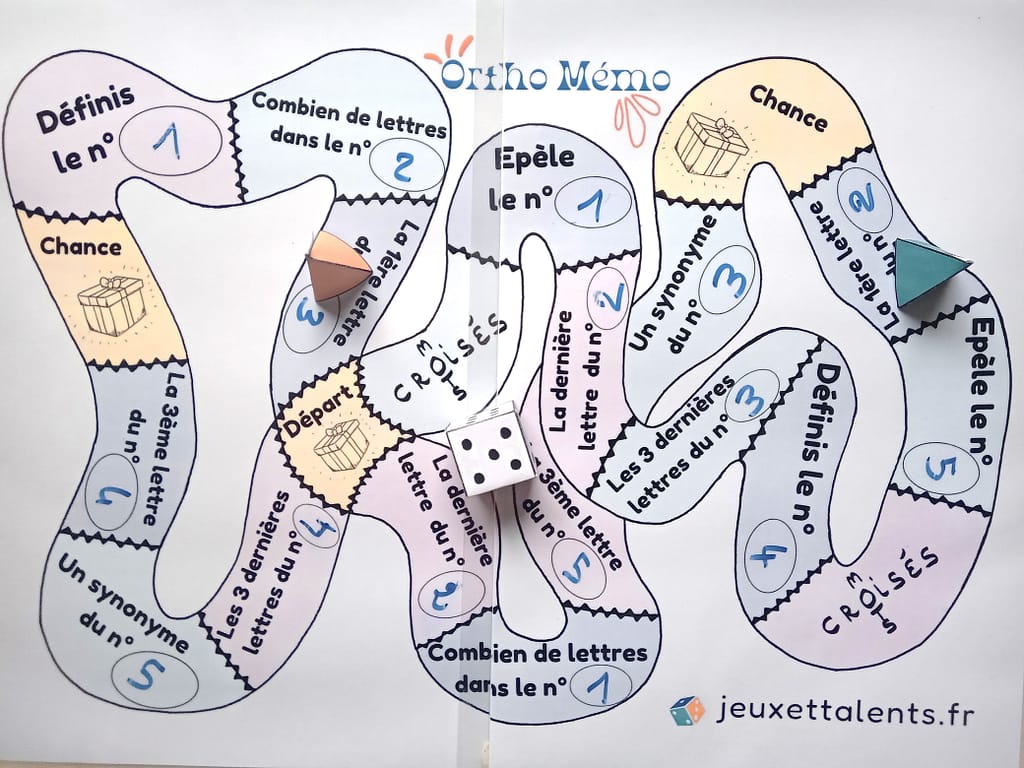 Ortho Mémo
Définis
le n° 1
Combien de lettres
dans le n° 2
Epèle
le n° 1
Chance
Chance
La 1ère lettre
3
MOTS
CROISÉS
La dernière
lettre du n° 2
Un synonyme
du n° 3
La 1ère lettre
du n° 2
Epèle le n°
5
Départ
La 3ème lettre
du n°
4
Les 3 dernières
lettres du n° 4
La dernière
lettre du n°
2
3ème lettre
du n°
5
Les 3 dernières
lettres du n° 3
Définis le n°
4
MOTS
CROISÉS
Un synonyme
du n°
5
Combien de lettres
dans le n° 1
jeuxettalents.fr